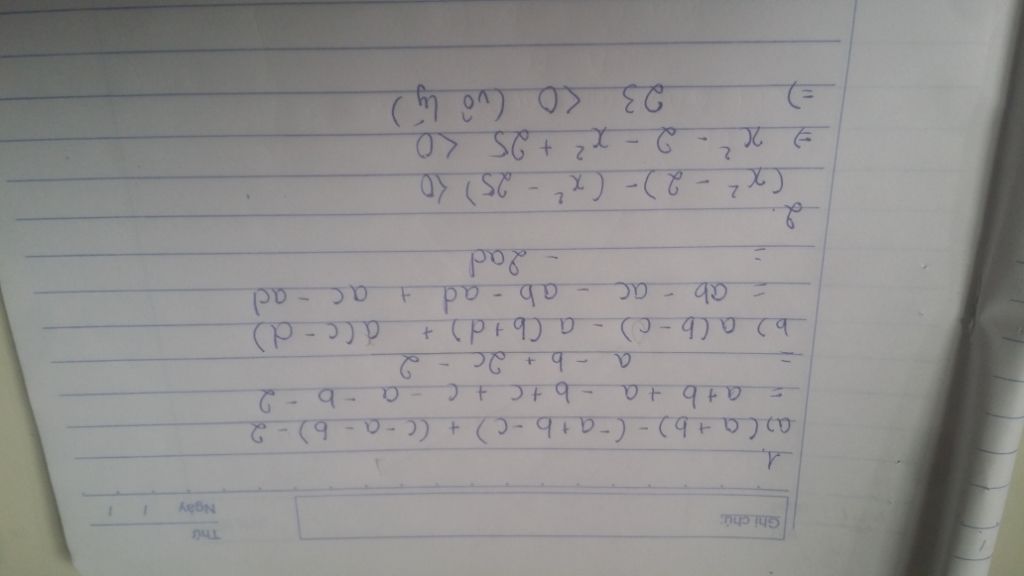 Thứ
Ghi chú:
Ngày / /
1.
a) (a+b) - (-a+b-c) + (c-a-b) - 2
= a+b + a - b+c + c - a - b - 2
= a - b + 2c - 2
b) a(b-c) - a(b+d) + a(c-d)
= ab - ac - ab - ad + ac - ad
= - 2ad
2.
(x² - 2) - (x² - 25) <0
=> x² - 2 - x² + 25 <0
=> 23 <0 (vô lý)